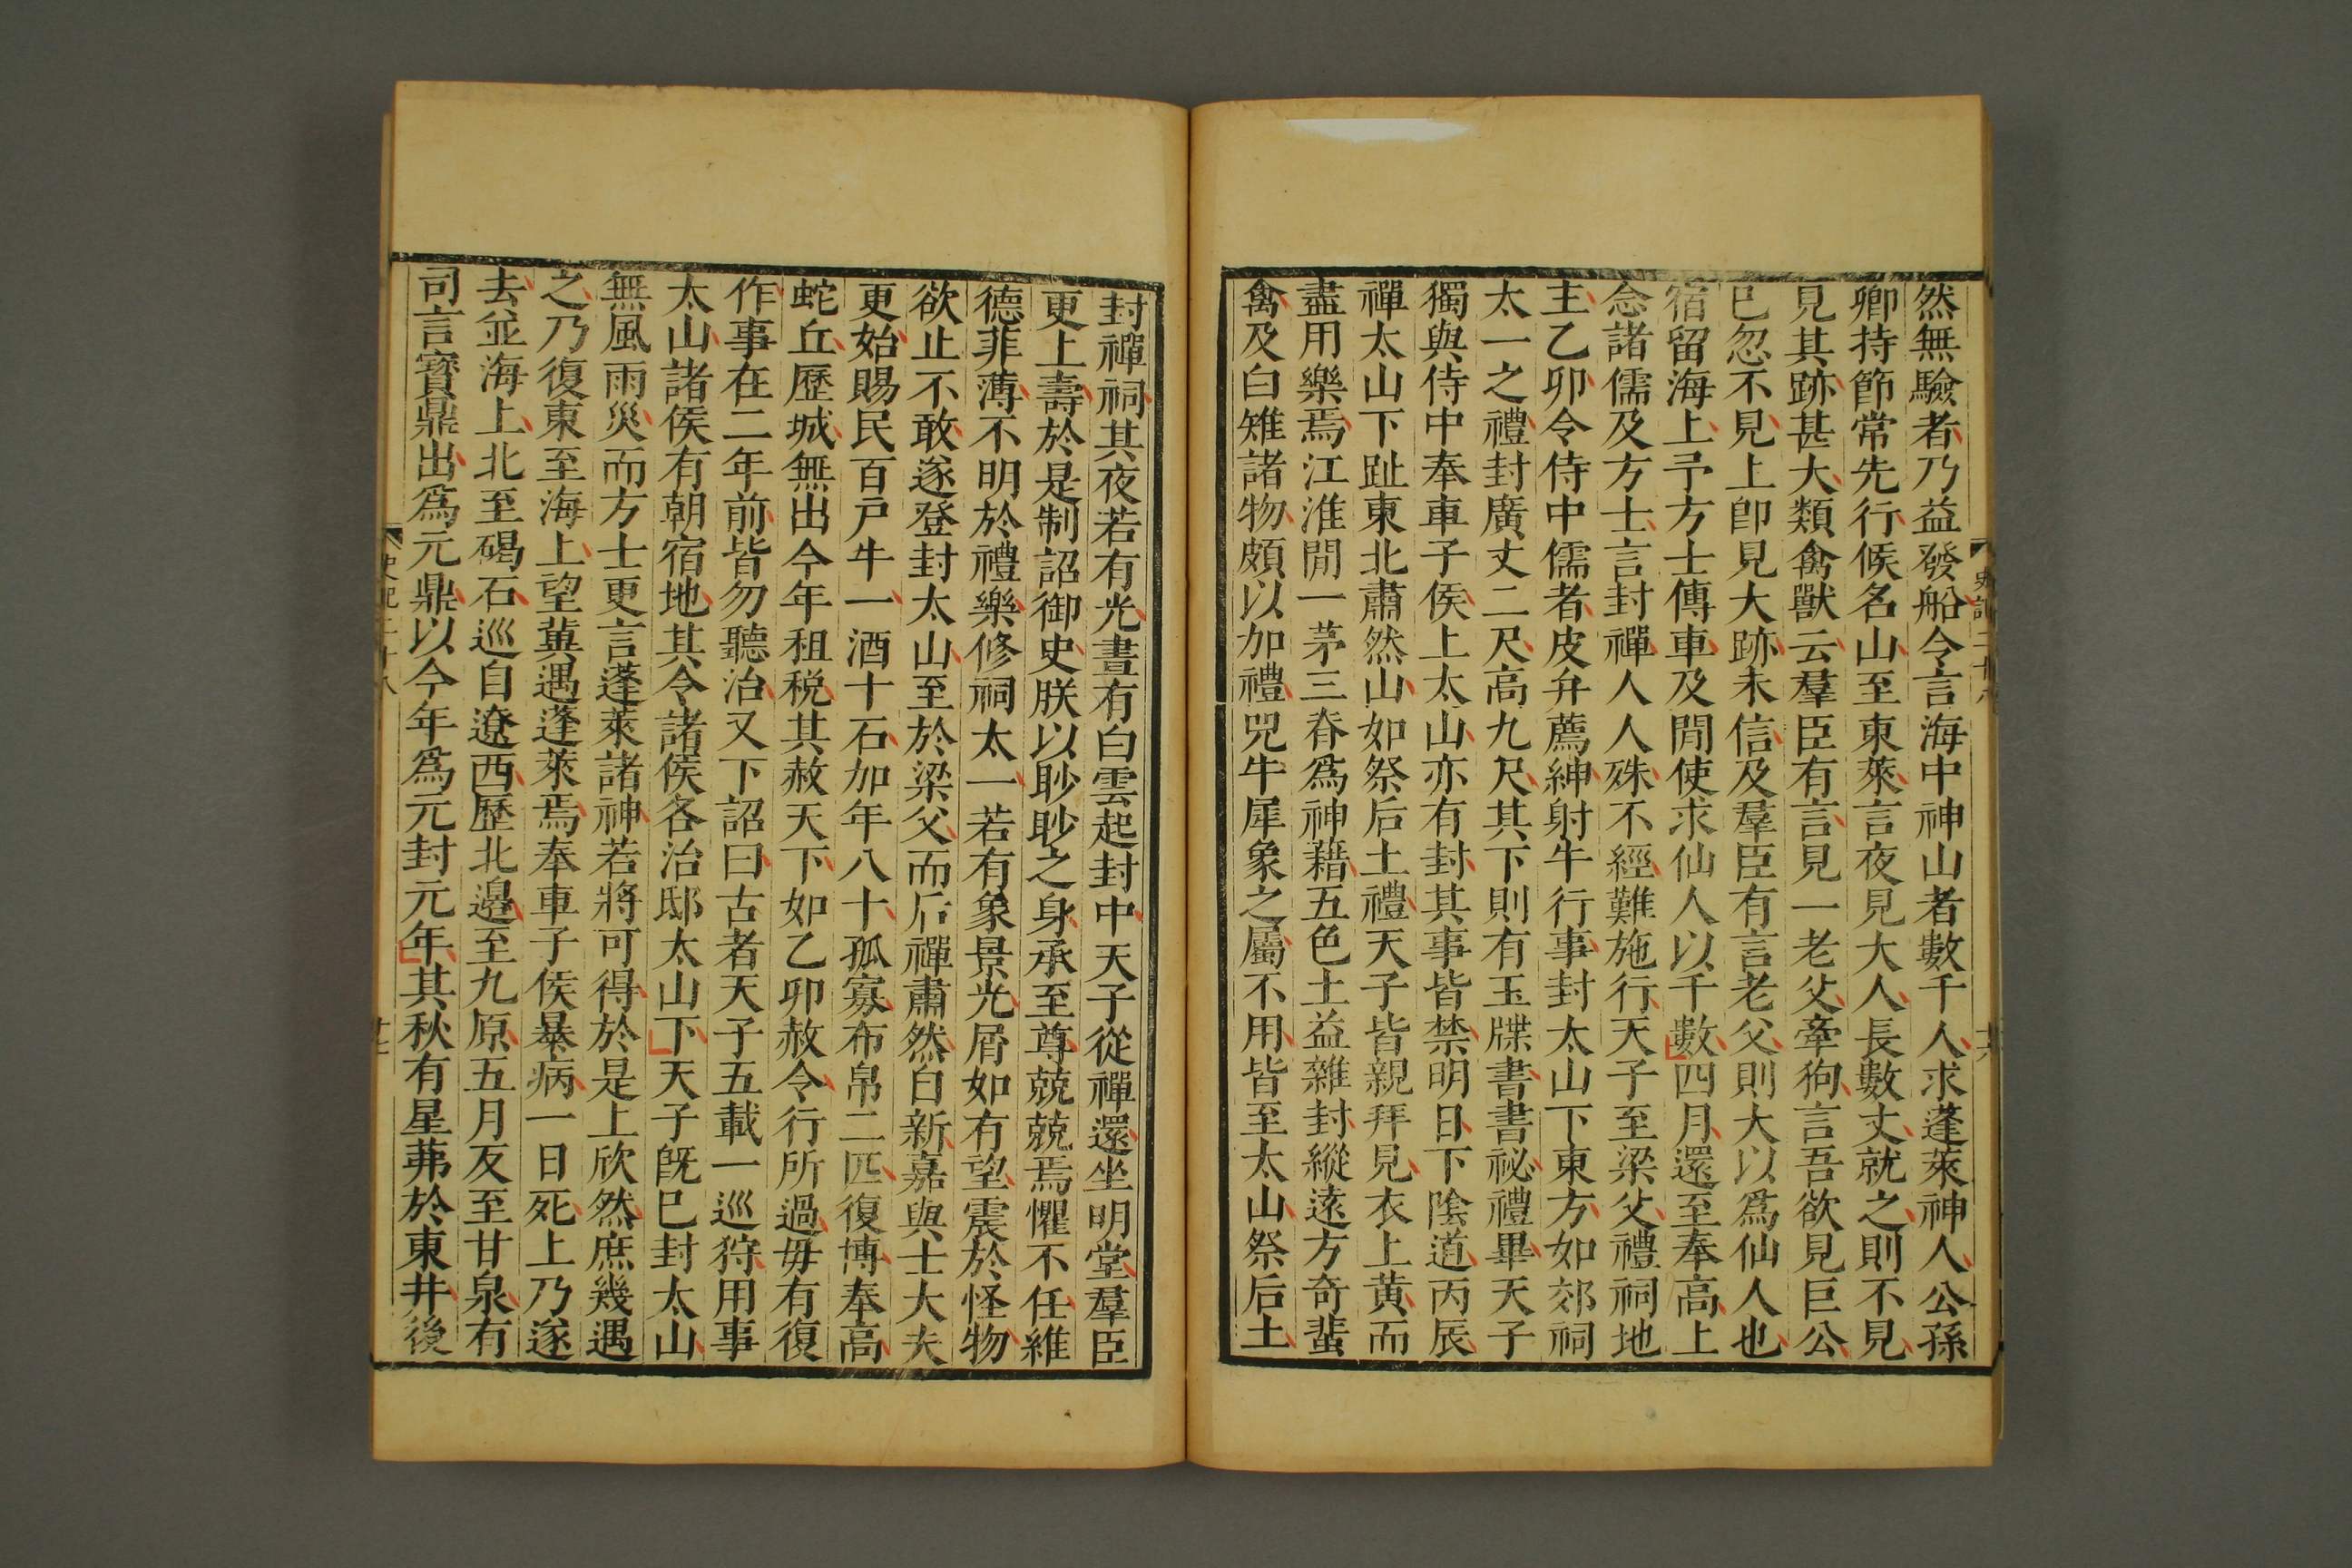 然無驗者乃益發船令言海中神山者數千人求蓬萊神人公孫
卿持節常先行候名山至東萊言夜見大人長數丈就之則不見
見其跡甚大類禽獸云羣臣有言見一老父牽狗言吾欲見巨公
已忽不見上卽見大跡未信及羣臣有言老父則大以爲仙人也
宿留海上予方士傳車及閒使求仙人以千數四月還至奉高上
念諸儒及方士言封禪人人殊不經難施行天子至梁父禮祠地
主乙卯令侍中儒者皮弁薦紳射牛行事封太山下東方如郊祠
太一之禮封廣丈二尺高九尺其下則有玉牒書書祕禮畢天子
獨與侍中奉車子侯上太山亦有封其事皆禁明日下陰道丙辰
禪太山下趾東北肅然山如祭后土禮天子皆親拜見衣上黃而
盡用樂焉江淮閒一茅三脊爲神藉五色土益雜封縱遠方奇蜚
禽及白雉諸物頗以加禮兕牛犀象之屬不用皆至太山祭后土
封禪祠其夜若有光晝有白雲起封中天子從禪還坐明堂羣臣
更上壽於是制詔御史朕以眇眇之身承至尊兢兢焉懼不任維
德菲薄不明於禮樂修祠太一若有象景光屑如有望震於怪物
欲止不敢遂登封太山至於梁父而后禪肅然自新嘉與士大夫
更始賜民百戶牛一酒十石加年八十孤寡布帛二匹復博奉高
蛇丘歷城無出今年租稅其赦天下如乙卯赦令行所過毋有復
作事在二年前皆勿聽治又下詔曰古者天子五載一巡狩用事
太山諸侯有朝宿地其令諸侯各治邸太山下天子旣已封太山
無風雨災而方士更言蓬萊諸神若將可得於是上欣然庶幾遇
之乃復東至海上望冀遇蓬萊焉奉車子侯暴病一日死上乃遂
去並海上北至碣石巡自遼西歷北邊至九原五月反至甘泉有
司言寶鼎出爲元鼎以今年爲元封元年其秋有星茀於東井後
史記二十八